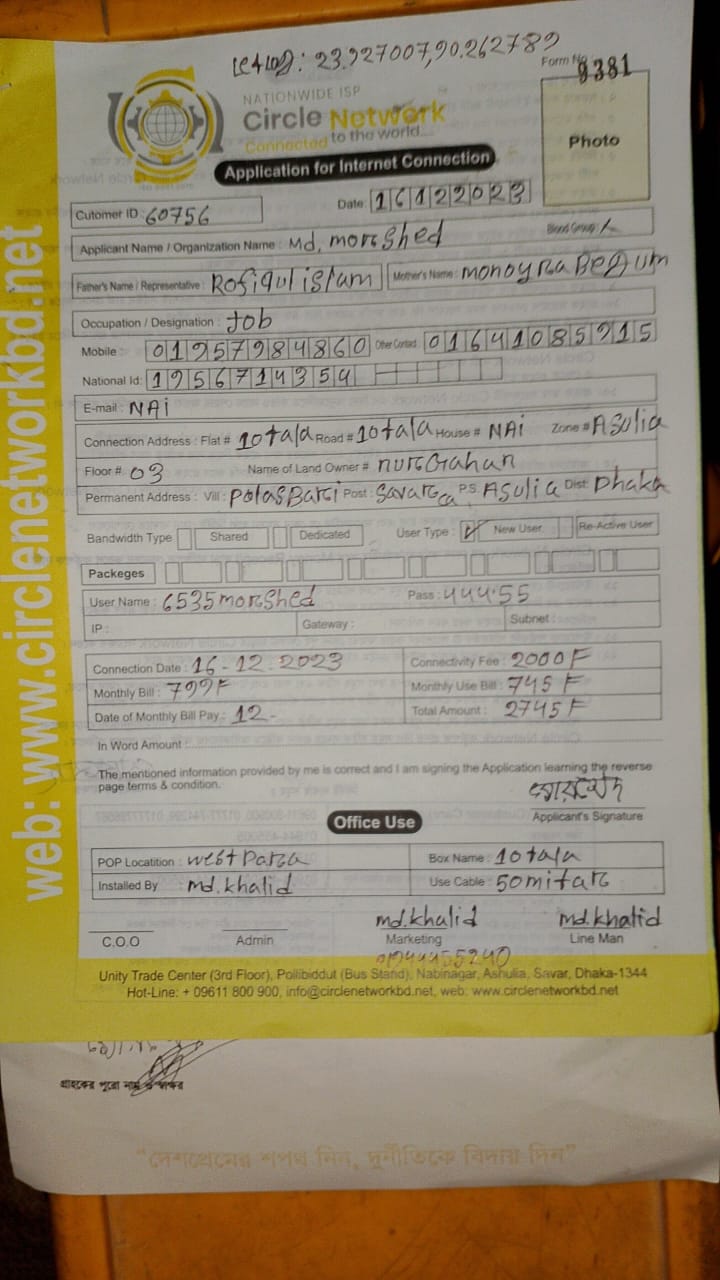 : 23.927007,90.262789
Form No. 9381
NATIONWIDE ISP
Circle Network
Connected to the world...
Photo
Application for Internet Connection
Date: 16122023
Cutomer ID : 60756
Applicant Name / Organization Name : Md, morshed Blood Group
Father's Name / Representative : Rofiqul islam Mother's Name : monoyRa Begum
Occupation / Designation : Job
Mobile : 01957984860 Other Contact 01641085915
National Id: 1956714354
E-mail : NAi
Connection Address : Flat # 10tala Road # 10tala House # NAi Zone # ASulia
Floor # 03 Name of Land Owner #
Permanent Address : Vill : Post : P.S. ASulia Dist: Dhaka
Bandwidth Type Shared Dedicated User Type : New User Re-Active User
Packeges
User Name : 6535morshed Pass : 444.55
IP : Gateway : Subnet :
Connection Date : 16-12.2023 Connectivity Fee : 2000 F
Monthly Bill : 799F Monthly Use Bill : 745 F
Date of Monthly Bill Pay : 12- Total Amount : 2745 F
In Word Amount :
The mentioned information provided by me is correct and I am signing the Application learning the reverse
page terms & condition.
মোরশেদ
Applicant's Signature
Office Use
POP Locatition : west Para Box Name : 10tala
Installed By : md.khalid Use Cable : 50mitar
md.khalid md.khalid
C.O.O Admin Marketing Line Man
Unity Trade Center (3rd Floor), Pollibiddut (Bus Stand), Nabinagar, Ashulia, Savar, Dhaka-1344
Hot-Line: + 09611 800 900, info@circlenetworkbd.net, web: www.circlenetworkbd.net
web: www.circlenetworkbd.net
গ্রাহকের পুরো নাম ও স্বাক্ষর
“দেশপ্রেমের শপথ নিন, দুর্নীতিকে বিদায় দিন”